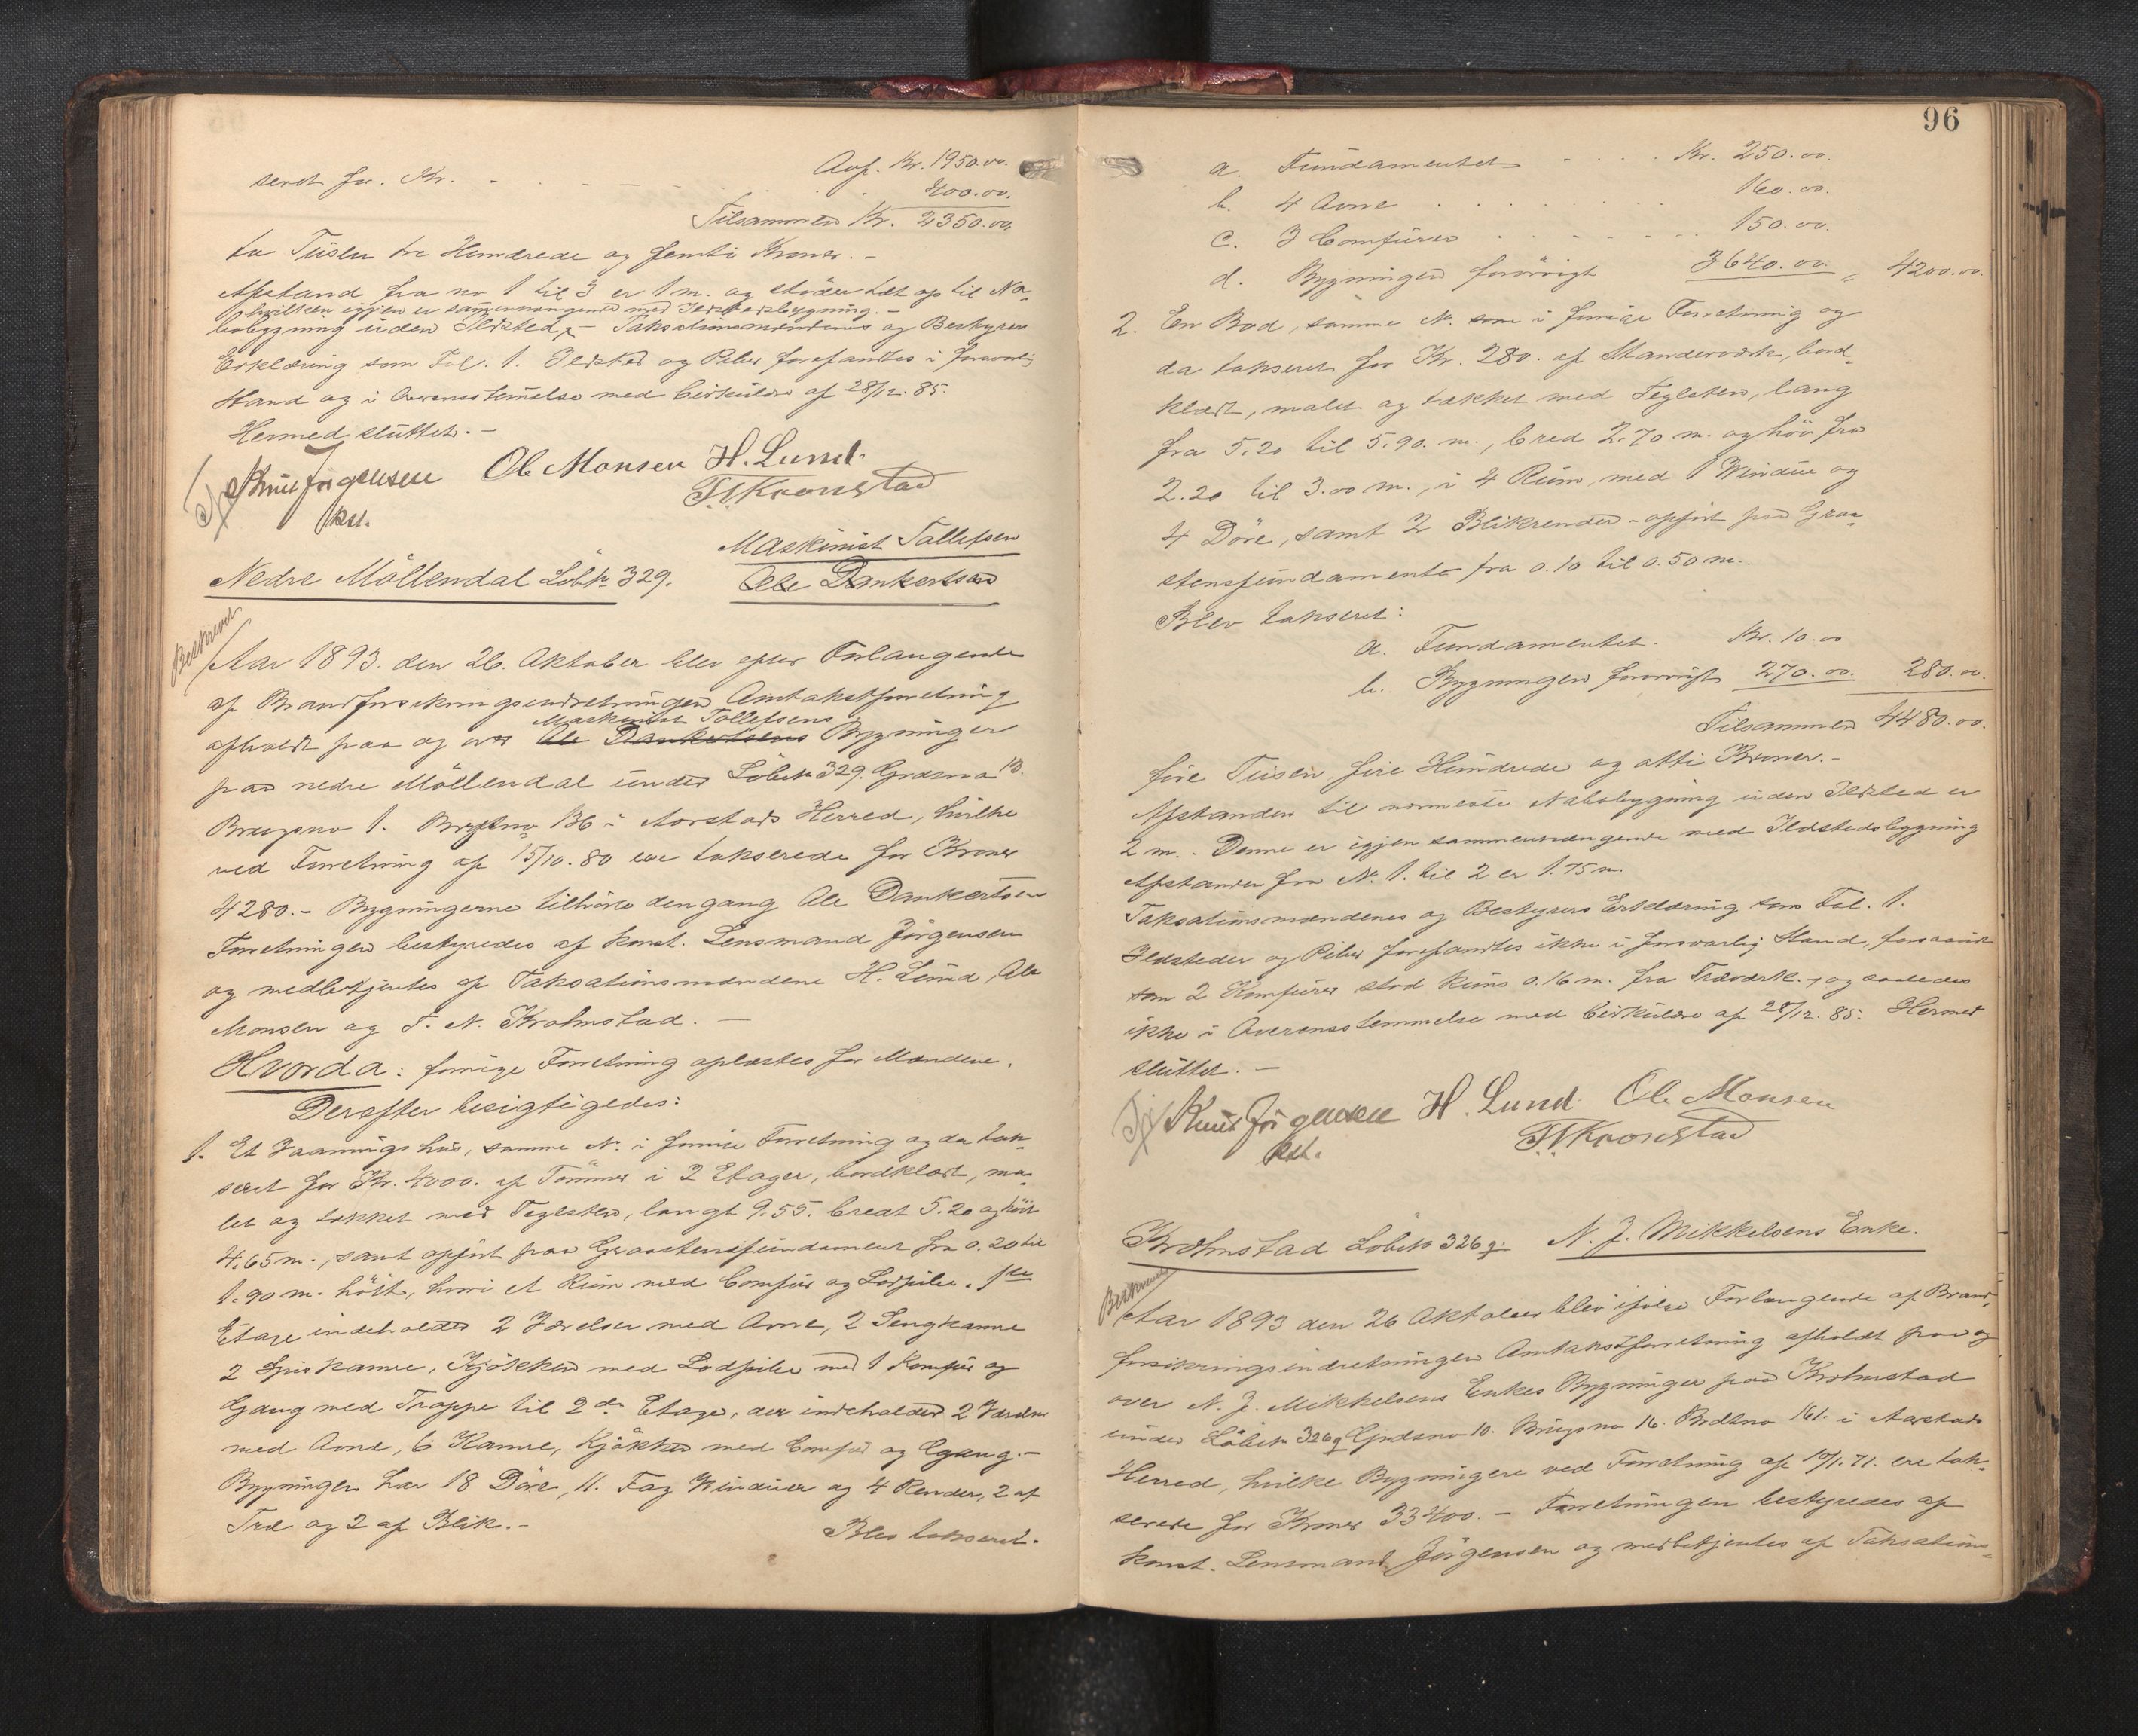 Aof. Kr. 1950.00.
seret for. Kr. - - - - - - 400.00.
Tilsammen Kr. 2350.00.
to Tusen tre Hundrede og femti Kroner. -
Afstand fra no 1 til 3 er 1 m. og støder tæt op til Na-
hvilken igjen er sammenhængende med Ildstedsbygning. -
bobygning uden Ildsted, - Taksationsmændenes og Bestyrers
Erklæring som Fol. 1. Ildsted og Piber forefandtes i forsvarlig
Stand og i Overensstemelse med Cirkulære af 28/12. 85.
Hermed sluttet. -
Knut Jørgensen Ole Monsen H. Lund.
kst. T. N. Kronstad
Maskinist Tollefsen
Nedre Möllendal Löbn 329. Ole Dankertsen
Beskrevet
Aar 1893. den 26. Oktober blev efter Forlangende
af Brandforsikringsindretningen Omtakstforretning
Maskinist Tollefsens
afholdt paa og over Ole Dankertsens Bygninger
paa nedre Möllendal under Löbn 329. Grdsno 13.
Brugsno 1. Brdtno 136 i Aarstads Herred, hvilke
ved Forretning af 15/10. 80 ere takserede for Kroner
4280. - Bygningerne tilhörte dengang Ole Dankertsen
Forretningen bestyredes af konst. Lensmand Jörgensen
og medbetjentes af Taksationsmændene H. Lund, Ole
Monsen og T. N. Krohnstad. -
Hvorda: forrige Forretning oplæstes for Mændene.
Derefter besigtigedes:
1. Et Vaaningshus, samme N. i forrige Forretning og da tak-
seret for Kr. 4000. af Tömmer i 2 Etager, bordklædt, ma-
let og tækket med Teglsten, langt 9.55. bredt 5.20 og höit
4.65 m., samt opført paa Graastensfundament fra 0.20 til
1.90 m. höit, hvori et Rum med Comfür og Lodpibe. 1ste
Etage indeholder 2 Værelser med Ovne, 2 Sengkamre
2 Spiskamre, Kjökken med Lodpibe med 1 Komfür og
Gang med Trappe til 2den Etage, der indeholder 2 Værelser
med Ovne, 6 Kamre, Kjökken med Comfür og Gang. -
Bygningen har 18 Döre, 11. Fag Vinduer og 4 Render, 2 af
Træ og 2 af Blik. -
Blev takseret.
96
a. Fundamentet - - - - Kr. 250.00.
b. 4 Ovne . . . . . . . 160.00.
c. 3 Comfürer . . . . . . 150.00.
d. Bygningen forövrigt 3640.00. = 4200.00.
2. En Bod, samme N. som i forrige Forretning og
da takseret for Kr. 280. af Standerværk, bord-
klædt, malet og tækket med Teglsten, lang
fra 5.20 til 5.90. m., bred 2.70 m. og höi fra
2.20 til 3.00 m., i 4 Rum, med 1 Vindue og
4 Döre, samt 2 Blikrender - opfört paa Graa-
stensfundament fra 0.10 til 0.50 m..
Blev takseret:
a. Fundamentet. Kr. 10.00
b. Bygningen forövrigt 270.00. 280.00.
Tilsammen 4480.00.
fire Tusen fire Hundrede og otti Kroner. -
Afstanden til nærmeste Nabobygning uden Ildsted er
2 m. . Denne er igjen sammenhængende med Ildstedsbygning
Afstanden fra N. 1. til 2 er 1.75 m.
Taksationsmændenes og Bestyrers Erklæring som Fol. 1.
Ildsteder og Piber forefandtes ikke i forsvarlig Stand, forsaavidt
som 2 Komfürer stod kuns 0.16 m. fra Træværk., og saaledes
ikke i Overensstemmelse med Cirkulære af 28/12. 85. Hermed
sluttet. -
Knut Jørgensen H. Lund. Ole Monsen
kst. T. N. Kronstad
Krohnstad Löben 326 g. N. J. Mikkelsens Enke.
Beskrevet
Aar 1893 den 26 Oktober blev ifölge Forlangende af Brand-
forsikringsindretningen Omtakstforretning afholdt paa og
over N. J. Mikkelsens Enkes Bygninger paa Krohnstad
under Löben 326 g Grdsno 10. Brugsno 16. Brdtno 161. i Aarstads
Herred, hvilke Bygninger ved Forretning af 10/1. 71. ere tak-
serede for Kroner 33400. - Forretningen bestyredes af
konst. Lensmand Jörgensen og medbetjentes af Taksations-